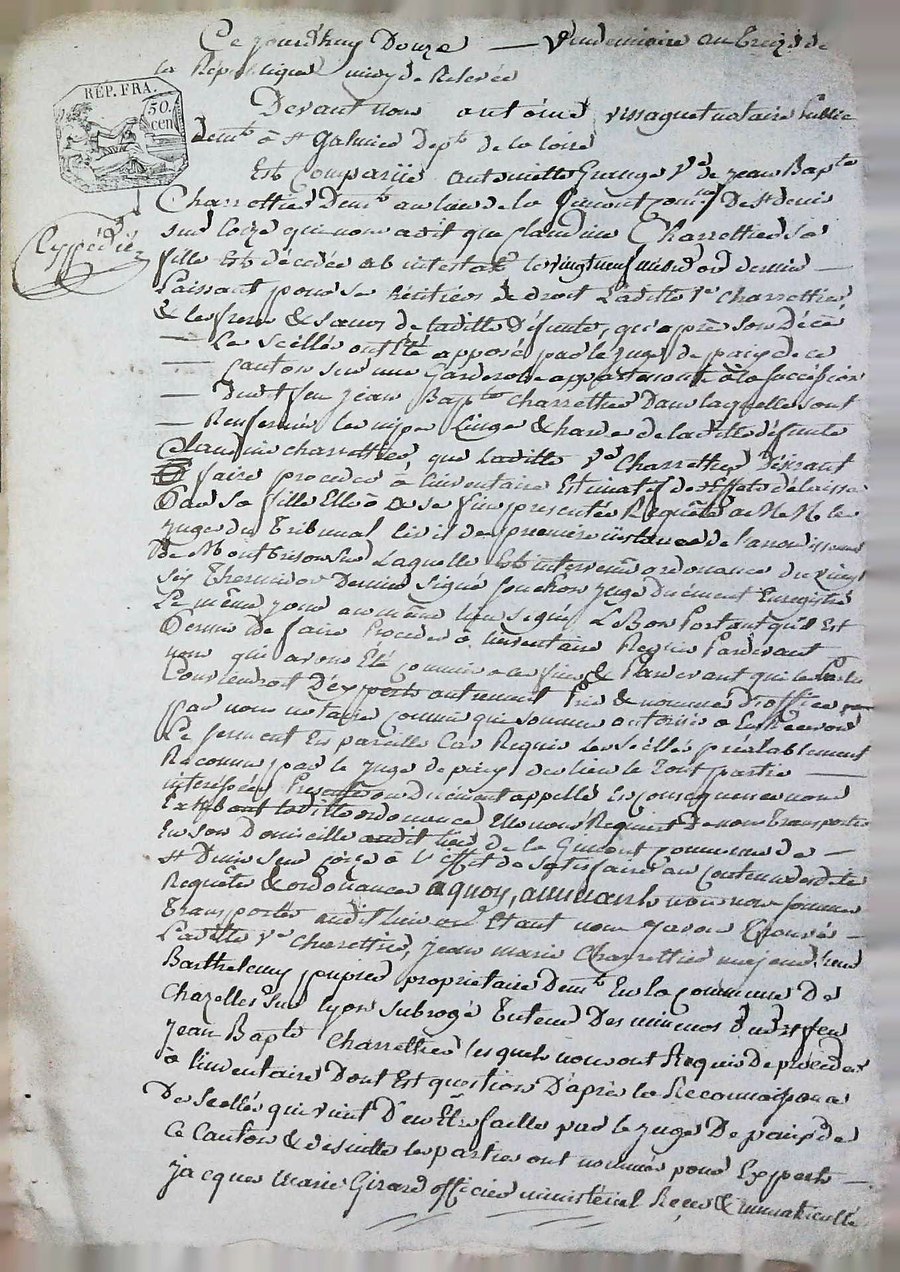 Ce jourdhuy Douze — Vendemiaire an treize de
la République midy de Relevée
RÉP. FRA.
50.
cen
Devant nous antoine vissaguet notaire Public
demt à St Galmier Dept de la loire
Est Comparüe antoinette Grange Ve de jean Bapte
Charrettier Demt au lieu de la Gimont comne De St denis
Expédiée
sur Coize qui nous a dit que Claudine Charrettier sa
fille Est décédée ab intestat le vingt neuf messidor dernier —
Laissant pour ses héritiers de droit Laditte Ve Charrettier
& les freres & sœurs de laditte Défunte, qu'après son Décès
— Les Scellés ont Été apposés par le juge de paix de ce
— Canton sur une Garderobe appartenant à la succession
— Dudit feu jean Bapte Charrettier Dans laquelle sont
— Renfermés les nipes Linges & hardes de laditte défunte
Claudine charrettier que Laditte Ve Charrettier Désirant
faire proceder à linventaire Estimatif des Effets délaissés
Par sa fille Elle a à ses fins presenté Requête à MM les
juges du Tribunal Civil de premiere instance de l'arrondissement
De Montbrison sur Laquelle Est intervenu ordonance du vingt
six Thermidor Dernier Signé fouchon juge duement Enregistré
Le même jour au même lieu signé Le Bon Portant qu'il Est
Permis de faire Proceder à linventaire Requis Pardevant
nous qui avons Été commis a ces fins & Pardevant qui les Parties
Conviendront D'experts autrement Pris & nommés d'office
par nous notaire commis qui sommes autorisé à En Recevoir
Le serment En pareille Cas Requis Les Scellés préalablement
Reconnus par le juge de paix du lieu le tout partie —
interessées Presentes ou duement appellé En consequence nous
Exhibant laditte ordonance Elle nous Requiert de nous transporter
En son Domicille audit lieu de la Gimont commune de —
St Denis sur Coize à l'Effet de satisfaire au contenu desdites
Requête & ordonances a quoy, adhérant nous nous sommes
Transportés audit lieu ou Etant nous y avons trouvés —
Laditte Ve Charrettier, jean marie Charrettier majeur, sieur
Barthelemy pupier propriétaire demt En la commune De
Chazelles sur lyon subrogé tuteur Des mineurs dudit feu
jean Bapte Charrettier lesquels nous ont Requis De procéder
à l'inventaire Dont Est question D'après la Reconnaissance
Des Scellés qui vient D'en Être faitte par le juge De paix de
Ce Canton & desuitte les parties ont nommés pour Experts —
jacques Marie Girard officier ministériel Reçu & immatriculé